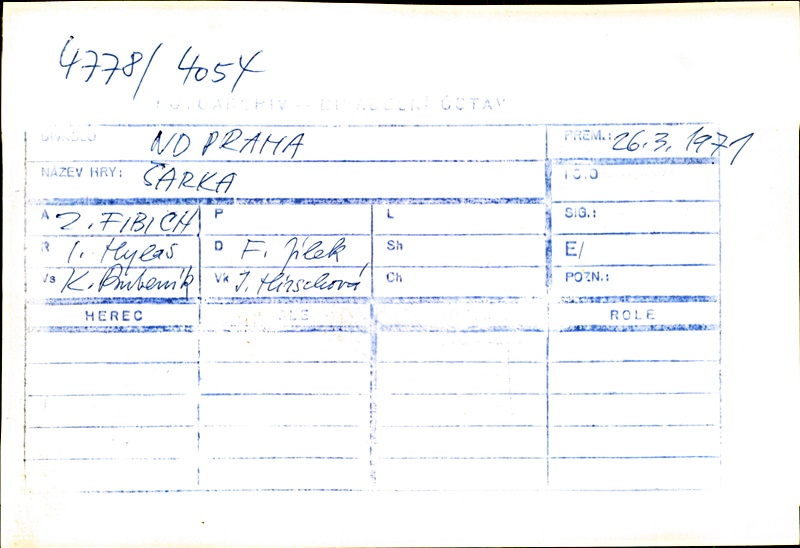 4778/ 4054
FOTOARCHIV – DIVADELNÍ ÚSTAV
DIVADLO ND PRAHA PREM.: 26.3.1971
NÁZEV HRY: ŠÁRKA FOTO
A Z. FIBICH P L SIG.:
R I. Hylas D F. Jílek Sh E/
Vs K. Bubeník Vk J. Hirschová Ch POZN.:
HEREC ROLE